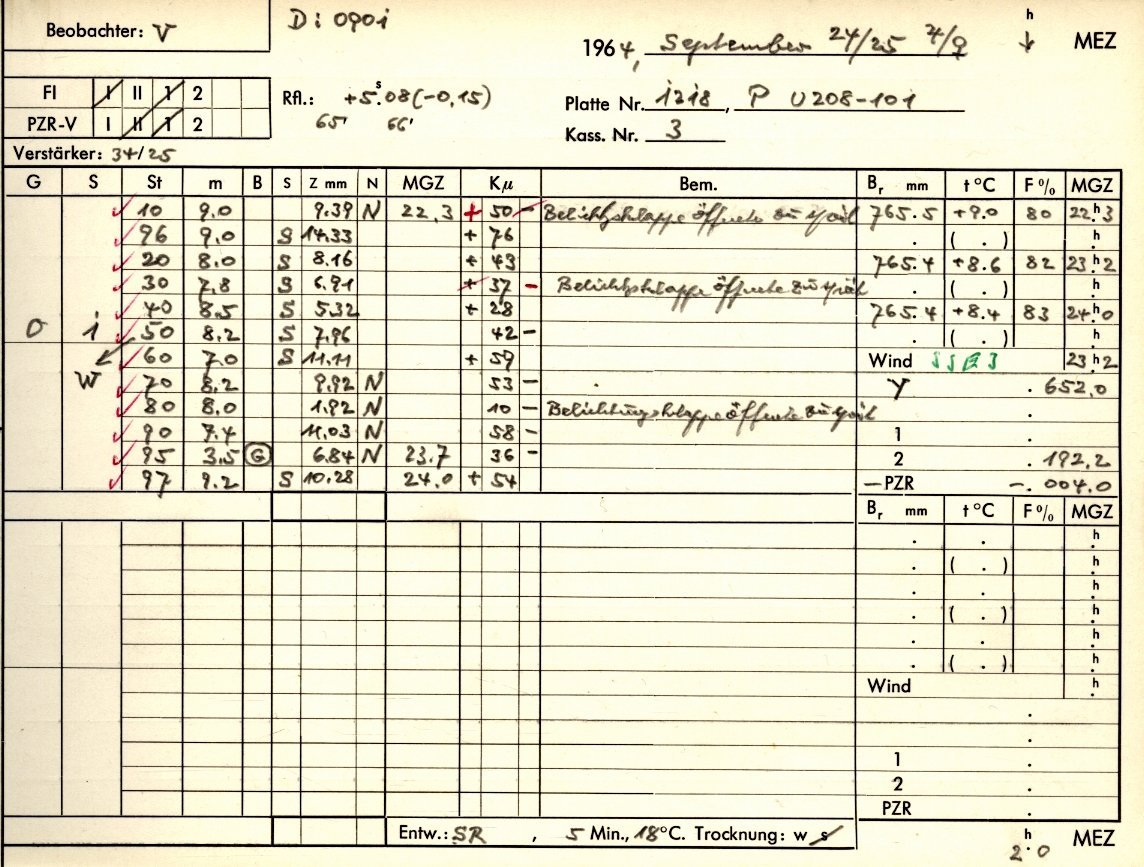 Beobachter: V
D: 0901
1964, September 24/25 7/9 h MEZ
FI I II 1 2
PZR-V I II 1 2
Rfl.: +5.08(-0,15) s
65' 66'
Platte Nr. 1218, P U208-101
Kass. Nr. 3
Verstärker: 34/25
G S St m B S Z mm N MGZ Kμ Bem. Br mm t °C F % MGZ
10 9.0 9.39 N 22.3 + 50 - öffnete zu spät 765.5 +9.0 80 22.h3
96 9.0 S 14.33 + 76 . ( . ) h.
20 8.0 S 8.16 + 43 765.4 +8.6 82 23.h2
30 7.8 S 6.91 + 37 - öffnete zu spät . ( . ) h.
40 8.5 S 5.32 + 28 765.4 +8.4 83 24.h0
0 i 50 8.2 S 7.96 42 - . ( . ) h.
60 7.0 S 11.11 + 59 Wind SSE 3 23.h2
W 70 8.2 9.92 N 53 - . Y . 652,0
80 8.0 1.92 N 10 - Belichtungsklappe öffnete zu spät .
90 7.4 11.03 N 58 - 1 .
95 3.5 G 6.84 N 23.7 36 - 2 . 192,2
97 9.2 S 10.28 24.0 + 54 —PZR —. 004.0
Br mm t °C F % MGZ
. . h.
. ( . ) h.
. . h.
. ( . ) h.
. . h.
. ( . ) h.
Wind h.
.
.
1 .
2 .
PZR .
Entw.: SR , 5 Min., 18°C. Trocknung: w s
2.h0 MEZ